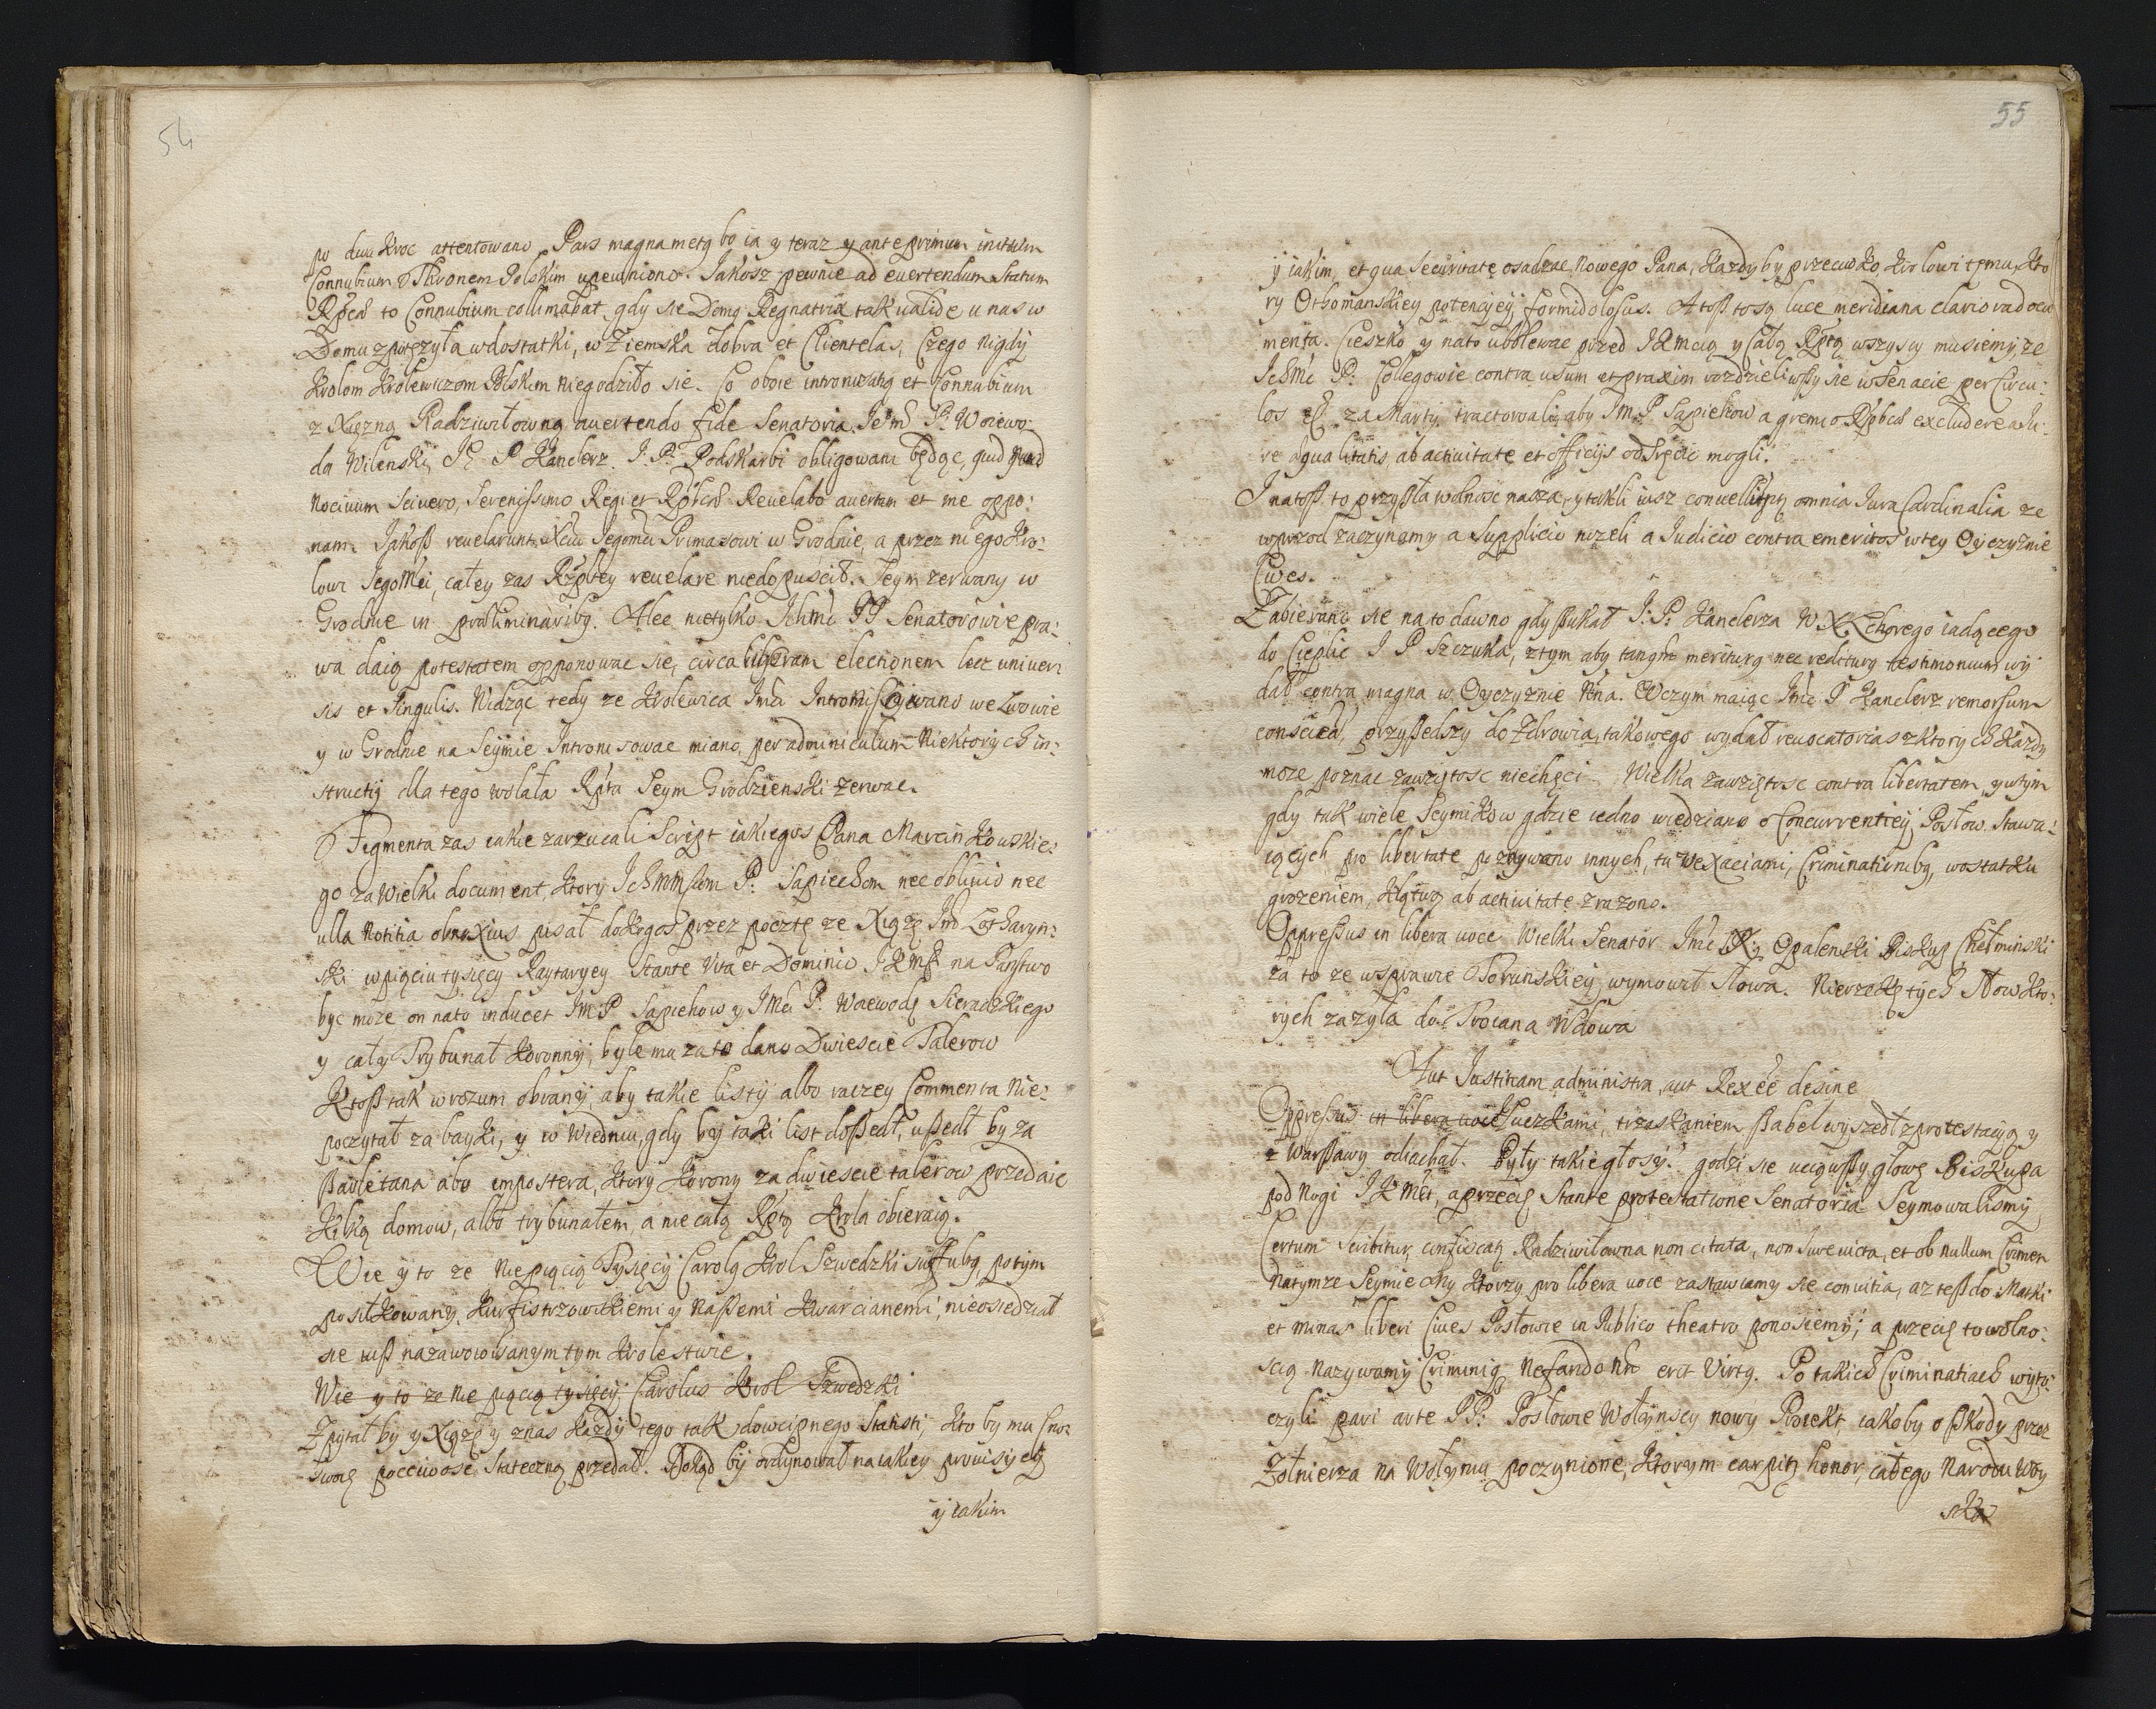 54
po dwa kroc attentowano Pars magna metq bo ia y teraz y ante primum initum
Connubium Thronem Polskim upewniono. Jakosz pewnie ad euertendum Statum
Rpcae to Connubium collimabat, gdy sie Domq Regnatrix tak ualide u nas w
Domu zpotęzyła w dostatki, w Ziemska dobra et Clientelas, Czego nigdy
Krolom Krolewiczom Polskim niegodziło sie. Co oboie intronizatq et Connubium
z Xięzną Radziwiłowną auertendo fide Senatoria Jchm P. Woiewo:
da Wilenski JE P Kanclerz J. P. Podskarbi obligowani będąc, quid quid
Nociuum Sciuero, Serenissimo Regi et Rpbcae Reuelabo auertam et me oppo:
nam. Jakoß reuelarunt Xciu Jegomci Primasowi w Grodnie, a przez niego Kro:
lowi Jegomci, całey zas Rzptey reuelare niedopuscił. Seym zerwany w
Grodnie in praeliminaribq. Alec nietylko Ichmc PP Senatorowie pra:
wa daią potestatem opponowac sie, circa liberam electionem lecz uniuer
sis et Singulis. Widząc tedy ze Krolewica Jmci we Lwowie
y w Grodnie na Seymie Intronisowac miano, per adminiculum Niektorych in:
structij dla tego wolała Rpta Seym Grodzienski zerwac.
Figmenta zas iakie zarzucali Script iakiegos Pana Marcinkowskie:
go za Wielki document, ktory Ichmsciom P: Sapiechom nec oblinio nec
ulla Notitia obnoxius pisał dokogos przez pocztę ze Xiąze Jmc Lotharyn:
ski w pięciu tysięcy Raytaryey Stante Vita et Dominio JKMsci na Panstwo
byc moze on nato inducet JmP Sapiehow y JMci P. Woiewodę Sieradzkiego
y cały Trybunał Koronny, byle mu za to dano Dwiescie Talerow
Ktoß tak w rozum obrany, aby takie listy albo raczey Commenta Nie:
poczytał za bayki, y w Wiedniu, gdy by taki list doßedł, ußedł by za
ßarletana abo impostera, ktory Korony za dwiescie talerow przedaie
Kilką domow, albo trybunałem, a nie całą Rptą Krola obieraią.
Wie y to ze Niepięcią Tysięcy Carolq Krol Szwedzki suffultq, potym
posiłkowany, Kurfistrzowskiemi y Naßemi Kwarcianemi, nieosiedział
sie iuß nazawoiowanym tym Krolestwie.
Wie y to ze Nie pięcią tysięcy Carolus Krol Szwedzki
Zpytał by y Xiąze y znas kazdy tego tak dowcipnego Statisti, kto by mu Cno:
swoię poccivosc Stateczną przedał. Dokąd by ordynował na takiey prouisiy elq
y iakim
55
y iakim et qua Securitate osadzac Nowego Pana, kazdy by przeciwko Krolowi temu, kto
ry Othomanskiey potencyey, formidolosus. Atoß to są luce meridiana clariora docu
menta. Cieszko y nato ubolewac przed JKMcią y Całą Rptą wszyscy musiemy, ze
Ichmc P. Collegowie contra usum et praxim rozdzieliwßy sie w Senacie per Circu:
los et za Marty, tractowali, aby Jm P Sapiehow a gremio Rpbcae excludere a Ju:
re aequalitatis, ab actiuitate et officijs odstręcic mogli.
I natoß to przyßła wolnosc nasza, y takli iusz conuelluntq omnia Jura Cardinalia ze
wprzod zaczynamy a Supplicio nizeli a Judicio contra emeritos w tey Oyczyznie
Ciues.
Zabierano sie na to dawno gdy ßukał J: P: Kanclerza W. X. L chorego iadącego
do Cieplic J P Szczuka, ztym aby tanqm meriturq nec rediturq testimonium wy
dał contra magna w Oyczyznie Nna. Wczym maiąc Jmc P Kanclerz remorsum
conscied przyßedszy do Zdrowia, takowego wydał reuocatorias z ktorych kazdy
moze poznac zawziętosc niechęci. Wielka zawziętosc contra libertatem, y wtym
gdy tak wiele Seymikow gdzie iedno wiedziano o Concurrentiey Posłow. Stawa:
iących pro libertate pozrywano innych, tu Vexaciami, Criminationibq, wostatku
grozeniem, Klątwą ab actiuitate zrazono.
Oppressus in libera uoce Wielki Senator Jmc X: Opalenski Biskup Chełminski
za to ze w sprawie Torunskiey, wymowił słowa. Nierzekę tych słow kto:
rych zazyła do Trocana Wdowa
Aut Justitiam administra, aut Rex eē desine
Oppressus in libera uoce huczkami, trzaskaniem ßabel wyszedł z protestacyą y
z Warßawy odiachał. Były takie głosy. godzi sie uciąwßy głowę Biskupa
pod Nogi JKMci, a przecię Stante protestatione Senatoria Seymowalismy,
Certum scribitur confiscatq Radziwiłowna non citata, non Iure uicta, et ob nullum Crimen
Natymze Seymie My ktorzy pro libera uoce zastawiamy sie conuitia, az teß do Matki
et minas liberi Ciues Posłowie in Publico theatro ponosiemy, a przecię to wolno:
scią Nazywamy Criminiq Nefando Nn erit Virtq. Po takich Criminatiach wyto:
czyli pari arte PP: Posłowie Wołynscy nowy Proiekt, iakoby o ßkody przez
Zołnierza na Wołyniu poczynione, ktorym carpitq honor całego Narodu Woy
sko